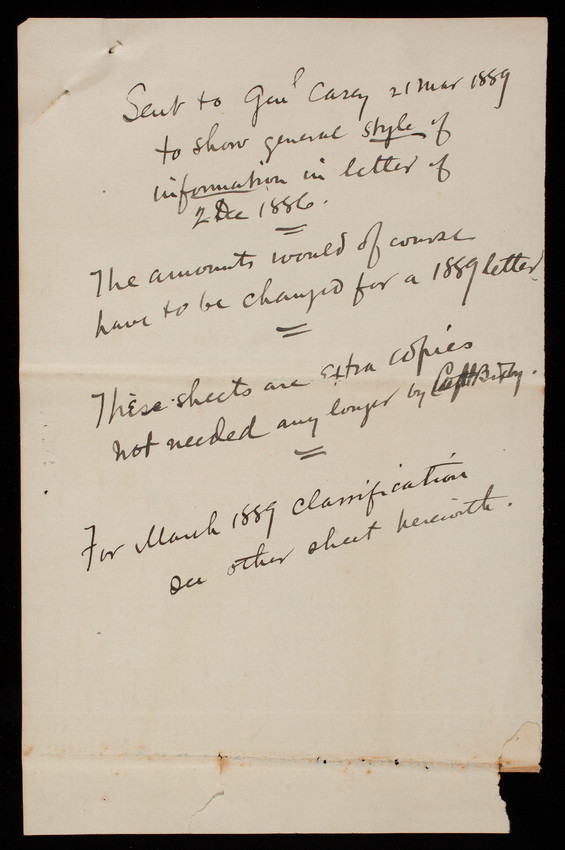 Sent to Genl Casey 21 Mar 1889
to show general style of
information in letter of
2 Dec 1886.
The amounts would of course
have to be changed for a 1889 letter.
These sheets are extra copies
not needed any longer by Capt Bixby.
For March 1889 classification
see other sheet herewith.